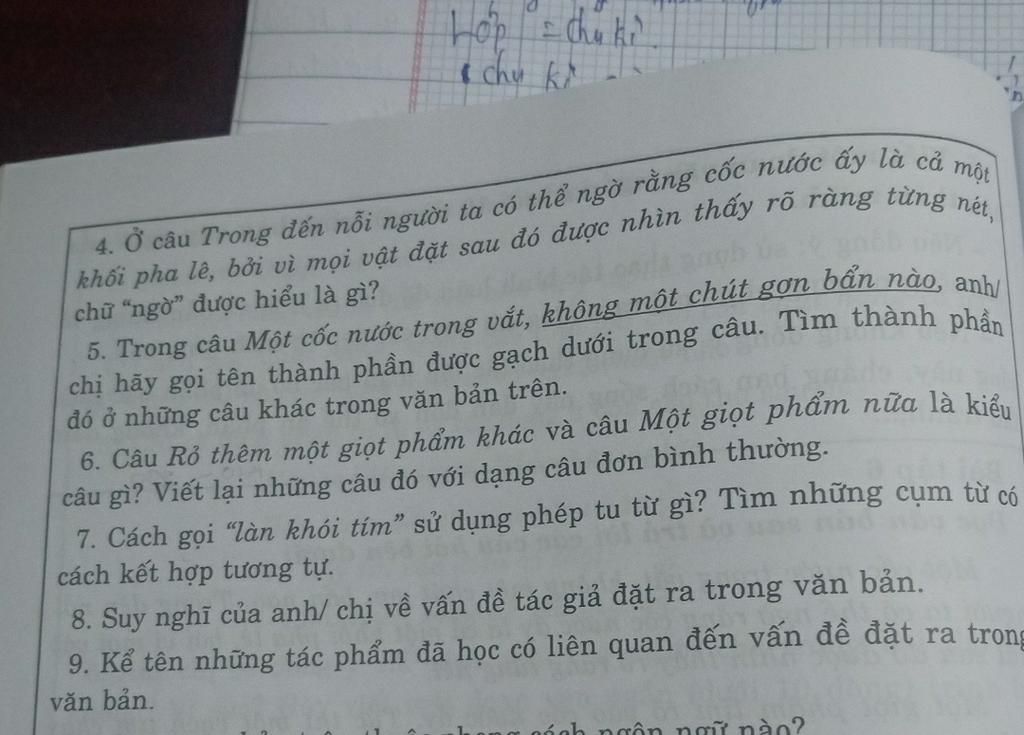 Lớp = chu kì.
chu kì
4. Ở câu Trong đến nỗi người ta có thể ngờ rằng cốc nước ấy là cả một
khối pha lê, bởi vì mọi vật đặt sau đó được nhìn thấy rõ ràng từng nét,
chữ “ngờ” được hiểu là gì?
5. Trong câu Một cốc nước trong vắt, không một chút gợn bẩn nào, anh/
chị hãy gọi tên thành phần được gạch dưới trong câu. Tìm thành phần
đó ở những câu khác trong văn bản trên.
6. Câu Rỏ thêm một giọt phẩm khác và câu Một giọt phẩm nữa là kiểu
câu gì? Viết lại những câu đó với dạng câu đơn bình thường.
7. Cách gọi “làn khói tím” sử dụng phép tu từ gì? Tìm những cụm từ có
cách kết hợp tương tự.
8. Suy nghĩ của anh/ chị về vấn đề tác giả đặt ra trong văn bản.
9. Kể tên những tác phẩm đã học có liên quan đến vấn đề đặt ra trong
văn bản.
cách ngôn ngữ nào?